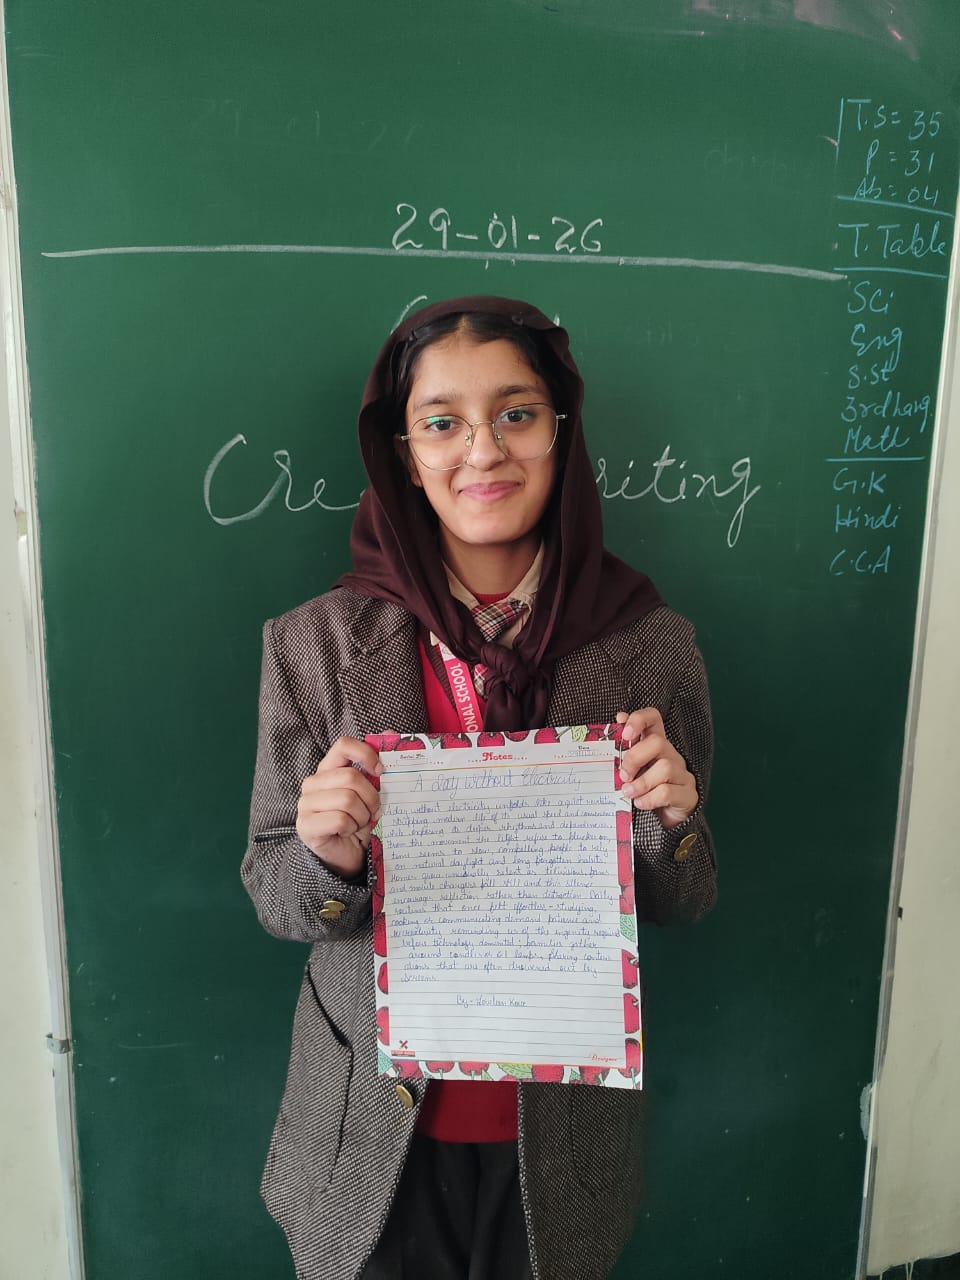 29-01-26
T.S = 35
P = 31
Ab = 04
T. Table
Sci
Eng
S.St
3rd lang.
Math
G.K
Hindi
C.C.A
Cre riting
ONAL SCHOOL
Notes
Date
A Day without Electricity
A day without electricity unfolds like a quiet revolution
stripping modern life of its usual speed and convenience
while exposing its deeper rhythms and dependencies.
From the movement the light to flicker on,
time seems to slow, compelling people to rely
on natural daylight and long forgotten habits.
Homes grow unusually silent as televisions, fans
and mobile chargers fall still and this silence
encourages reflection rather than distraction. Daily
routines that once felt effortless - studying,
cooking or communicating demand patience and
creativity reminding us of the ingenuity required
before technology dominated; families gather
around candles or oil lamps, sharing convers
ations that are often drowned out by
screens.
By - Kaur
Designer